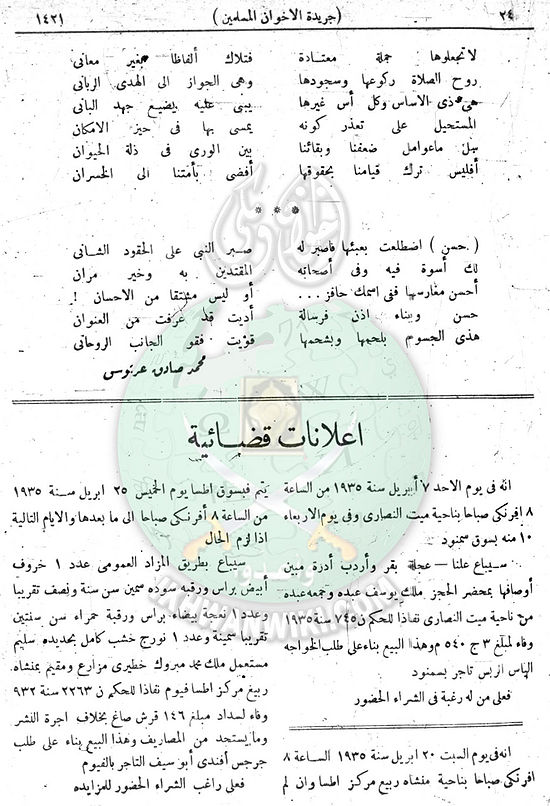 ٢٤
(جريدة الاخوان المسلمين)
١٤٢١
لاتجعلوها جملة معتادة فتلاك ألفاظا بغير معانى
روح الصلاة ركوعها وسجودها وهى الجواز الى الهدى الربانى
هى ذى الاساس وكل أس غيرها يبنى عليه يضيع جهد البانى
المستحيل على تعذر كونه يمسى بها فى حيز الامكان
سل ماعوامل ضعفنا وبقائنا بين الورى فى ذلة الحيوان
أفليس ترك قيامنا بحقوقها أفضى بأمتنا الى الخسران
* * *
(حسن) اضطلعت بعبئها فاصبر له صبر النبى على الحقود الشانى
لك أسوة فيه وفى أصحابه المقتدين به وخير مران
أحسن مغارسها ففى اسمك حافز... أو ليس مشتقا من الاحسان !
حسن وبناء اذن فرسالة أديت قد عرفت من العنوان
هذى الجسوم بلحمها وبشحمها قويت فقو الجانب الروحانى
محمد صادق عرنوس
اعلانات قضائية
انه فى يوم الاحد ٧ أبريل سنة ١٩٣٥ من الساعة
٨ افرنكى صباحا بناحية ميت النصارى وفى يوم الاربعاء
١٠ منه بسوق سمنود
سيباع علنا — عجلة بقر وأردب أذرة مبين
أوصافها بمحضر الحجز ملك يوسف عبده وجمعه عبده
من ناحية ميت النصارى نفاذا للحكم ن ٧٤٥ سنة ١٩٣٥
وفاء لمبلغ ٣ ج ٥٤٠ م وهذا البيع بناء على طلب الخواجه
الياس تاجر بسمنود
فعلى من له رغبة فى الشراء الحضور
انه فى يوم السبت ٢٠ ابريل سنة ١٩٣٥ الساعة ٨
افرنكى صباحا بناحية منشاه ربيع مركز اطسا وان لم
يتم فبسوق اطسا يوم الخميس ٢٥ ابريل سنة ١٩٣٥
من الساعة ٨ أفرنكى صباحا الى ما بعدها والايام التالية
اذا لزم الحال
سيباع بطريق المزاد العمومى عدد ١ خروف
أبيض براس ورقبة سوده سمين سن سنة ونصف تقريبا
وعدد ١ نعجة بيضاء براس ورقبة حمراء سن سنتين
تقريبا سمينة وعدد ١ نورج خشب كامل بحديده سليم
مستعمل ملك محمد مبروك خطيرى مزارع ومقيم بمنشاه
ربيع مركز اطسا فيوم نفاذا للحكم ن ٢٢٦٣ سنة ٩٣٢
وفاء لسداد مبلغ ١٤٦ قرش صاغ بخلاف اجرة النشر
وما يستجد من المصاريف وهذا البيع بناء على طلب
جرجس أفندى أبو سيف التاجر بالفيوم
فعلى راغب الشراء الحضور للمزايده
WWW.IKHWANWIKI.COM